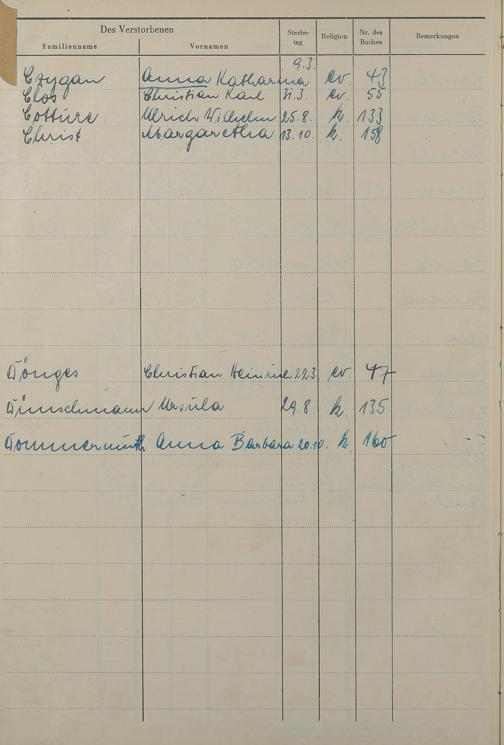 Des Verstorbenen Sterbe-tag Religion Nr. des Buches Bemerkungen
Familienname Vornamen
Czygan Anna Katharina 9.3. ev. 43
Clos Christian Karl 31.3. ev. 55
Cottüre Ulrich Wilhelm 25.8. k. 133
Christ Margaretha 13.10. k. 158
Dönges Christian Heinrich 22.3. ev. 47
Dünschmann Ursula 29.8. k. 135
Dommermuth Anna Barbara 20.10. k. 160